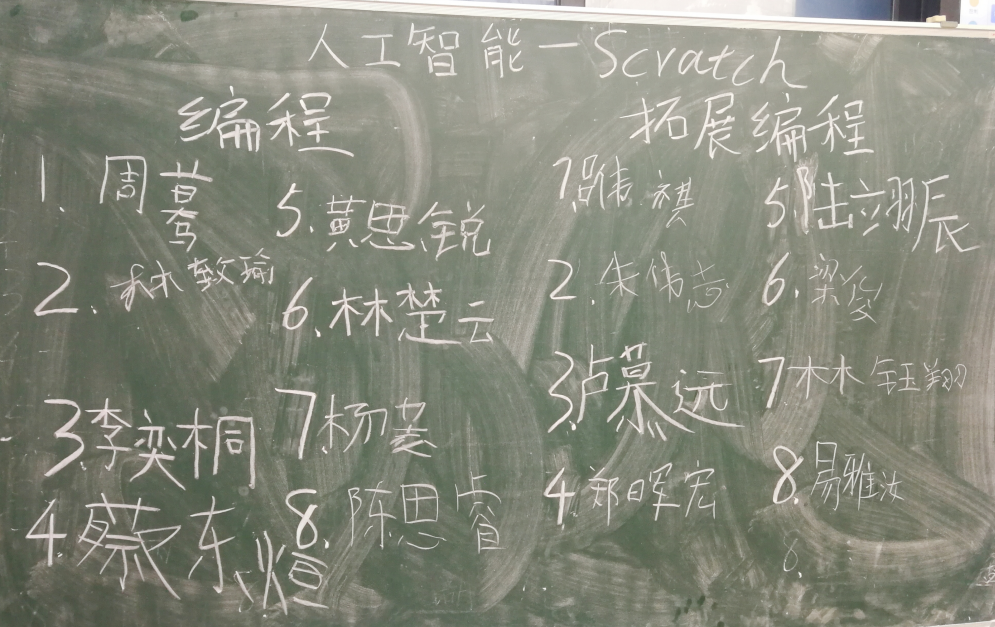 人工智能一Scratch
编程
1. 周蓦
2. 林致瑜
3. 李奕桐
4. 蔡东煊
5. 黄思锐
6. 林楚云
7. 杨芸
8. 陈思睿
拓展编程
1. 祺
2. 朱伟志
3. 卢慕远
4. 郑晖宏
5. 陆立翙辰
6. 梁俊
7. 林钰翔
8. 易雅汝